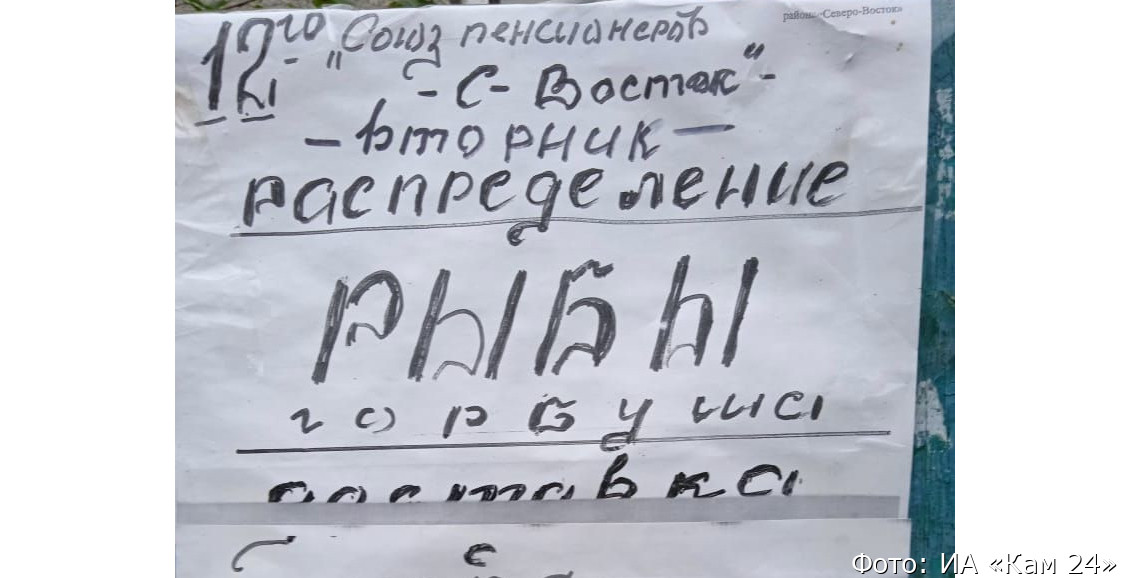 района «Северо-Восток»
12го - „Союз пенсионеров
- С - Восток" -
- вторник -
распределение
РЫБЫ
горбуша
доставка
Фото: ИА «Кам 24»